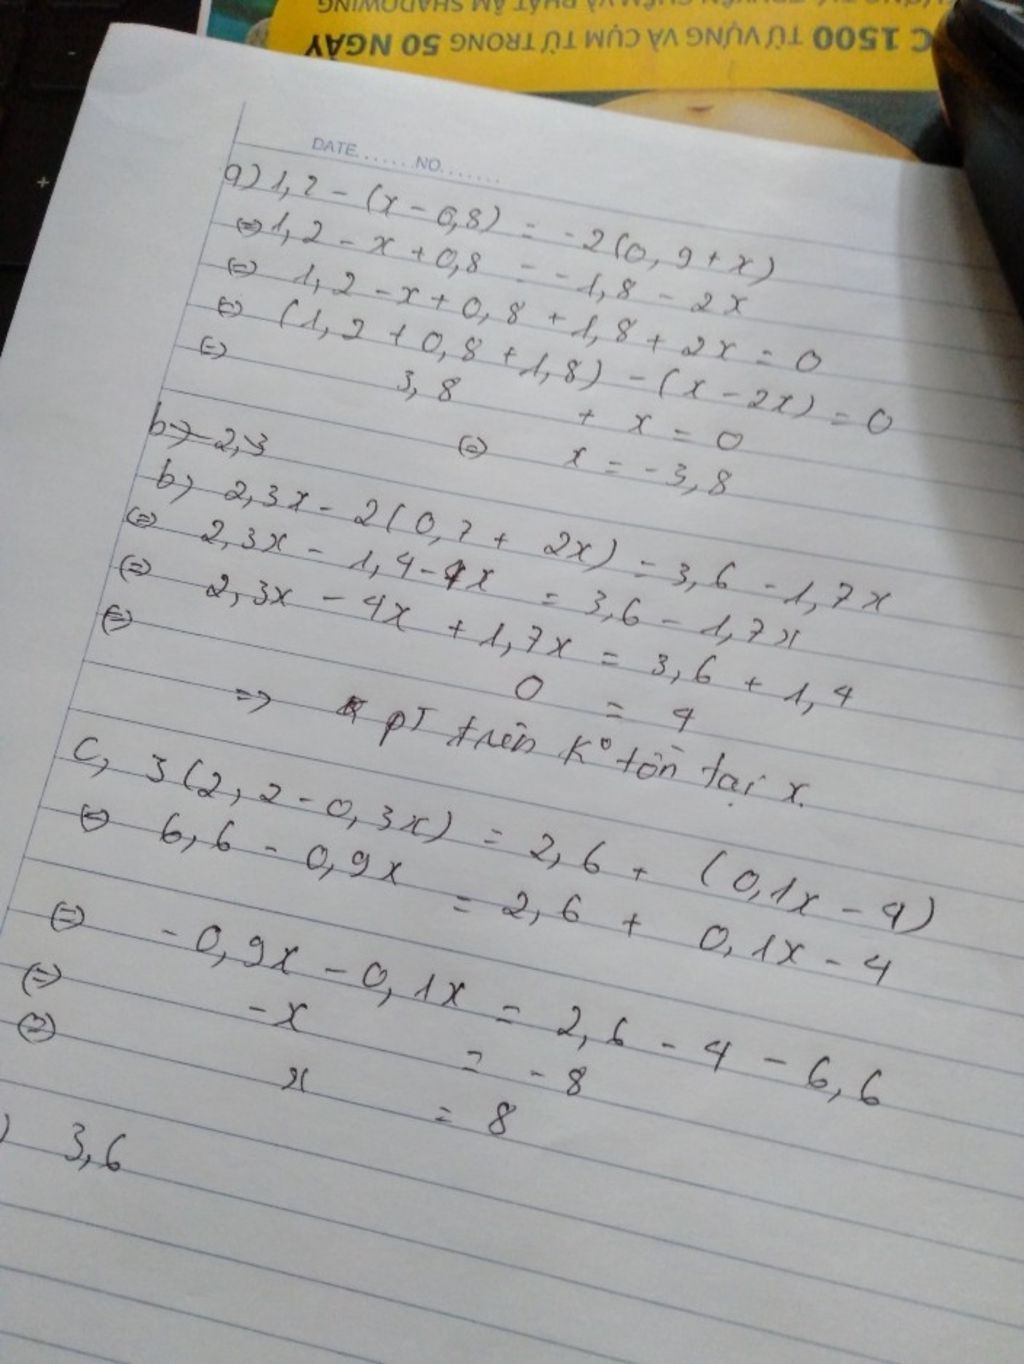 C 1500 TỪ VỰNG VÀ CỤM TỪ TRONG 50 NGÀY
DATE.......NO.......
a) 1,2 - (x - 0,8) = -2(0,9 + x)
⇔ 1,2 - x + 0,8 = -1,8 - 2x
⇔ 1,2 - x + 0,8 + 1,8 + 2x = 0
⇔ (1,2 + 0,8 + 1,8) - (x - 2x) = 0
⇔ 3,8 + x = 0
⇔ x = -3,8
b) -2,3
b) 2,3x - 2(0,7 + 2x) = 3,6 - 1,7x
⇔ 2,3x - 1,4 - 4x = 3,6 - 1,7x
⇔ 2,3x - 4x + 1,7x = 3,6 + 1,4
⇔ 0 = 4
=> pT trên K° tồn tại x.
C, 3(2,2 - 0,3x) = 2,6 + (0,1x - 4)
⇔ 6,6 - 0,9x = 2,6 + 0,1x - 4
⇔ -0,9x - 0,1x = 2,6 - 4 - 6,6
⇔ -x = -8
⇔ x = 8
) 3,6